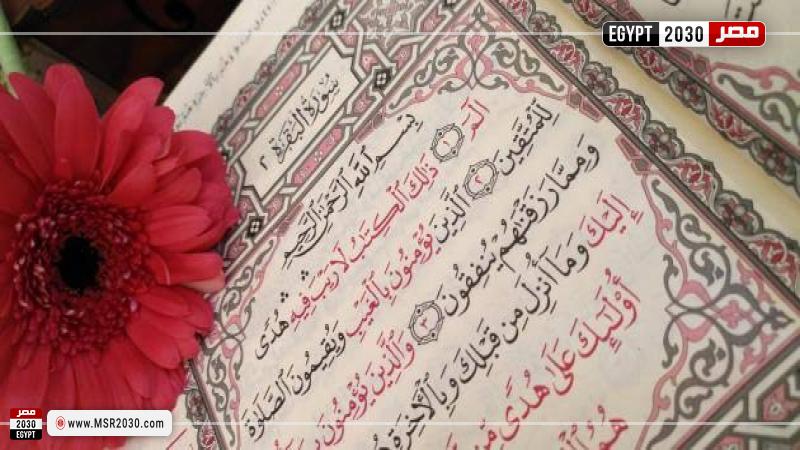 EGYPT 2030 مصر
سُورَةُ البَقَرَةِ ٢
بِسْمِ ٱللَّهِ ٱلرَّحْمَٰنِ ٱلرَّحِيمِ
الٓمٓ ١ ذَٰلِكَ ٱلْكِتَٰبُ لَا رَيْبَ فِيهِ هُدًى
لِّلْمُتَّقِينَ ٢ ٱلَّذِينَ يُؤْمِنُونَ بِٱلْغَيْبِ وَيُقِيمُونَ ٱلصَّلَوٰةَ
وَمِمَّا رَزَقْنَٰهُمْ يُنفِقُونَ ٣ وَٱلَّذِينَ يُؤْمِنُونَ
إِلَيْكَ وَمَآ أُنزِلَ مِن قَبْلِكَ وَبِٱلْأَخِرَةِ
أُو۟لَٰٓئِكَ عَلَىٰ هُدًى مِّن
هُمُ
مصر
2030
EGYPT
www.MSR2030.com